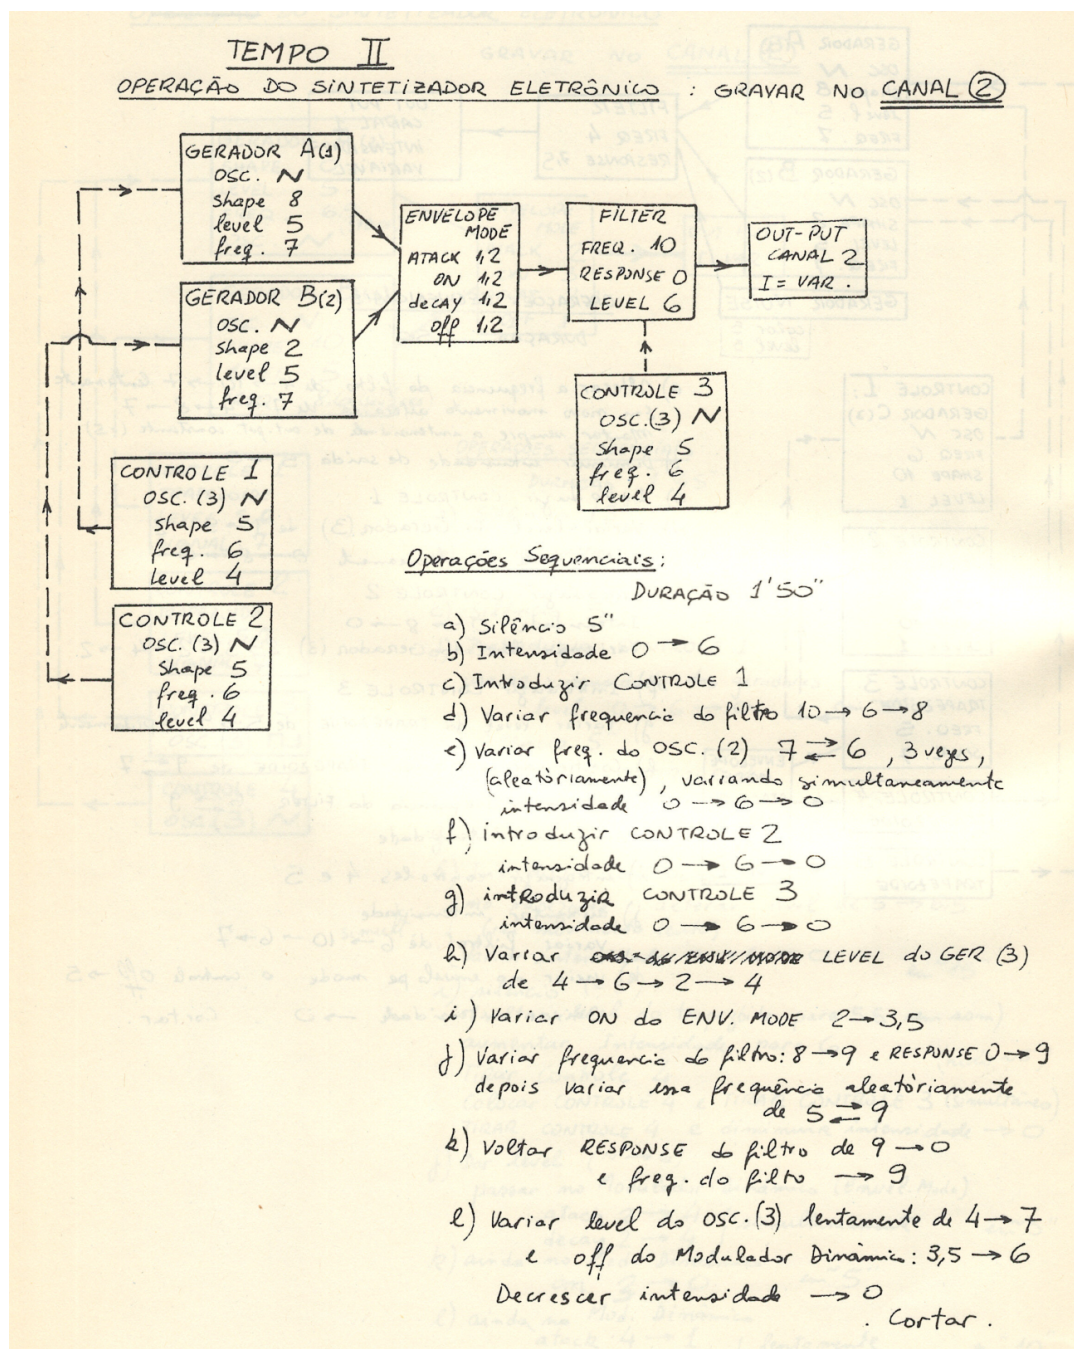 TEMPO II
OPERAÇÃO DO SINTETIZADOR ELETRÔNICO : GRAVAR NO CANAL 2
GERADOR A(1)
OSC. N
shape 8
level 5
freq. 7
GERADOR B(2)
OSC. N
shape 2
level 5
freq. 7
ENVELOPE
MODE
ATACK 1,2
ON 1,2
decay 1,2
off 1,2
FILTER
FREQ. 10
RESPONSE 0
LEVEL 6
OUT-PUT
CANAL 2
I = VAR.
CONTROLE 3
OSC.(3) N
Shape 5
freq. 6
level 4
CONTROLE 1
OSC. (3) N
shape 5
freq. 6
Level 4
CONTROLE 2
OSC. (3) N
Shape 5
freq. 6
level 4
Operações Sequenciais:
DURAÇÃO 1'50"
a) Silêncio 5"
b) Intensidade 0 → 6
c) Introduzir CONTROLE 1
d) Variar frequencia do filtro 10 → 6 → 8
e) Variar freq. do OSC. (2) 7 ⇄ 6 , 3 vezes,
(aleatòriamente) , variando simultaneamente
intensidade 0 → 6 → 0
f) introduzir CONTROLE 2
intensidade 0 → 6 → 0
g) introduzir CONTROLE 3
intensidade 0 → 6 → 0
h) Variar LEVEL do GER (3)
de 4 → 6 → 2 → 4
i) Variar ON do ENV. MODE 2 → 3,5
j) Variar frequencia do filtro: 8 → 9 e RESPONSE 0 → 9
depois variar essa frequência aleatòriamente
de 5 ⇄ 9
k) Voltar RESPONSE do filtro de 9 → 0
e freq. do filtro → 9
l) Variar level do OSC. (3) lentamente de 4 → 7
e off do Modulador Dinâmico: 3,5 → 6
Decrescer intensidade → 0
. Cortar.